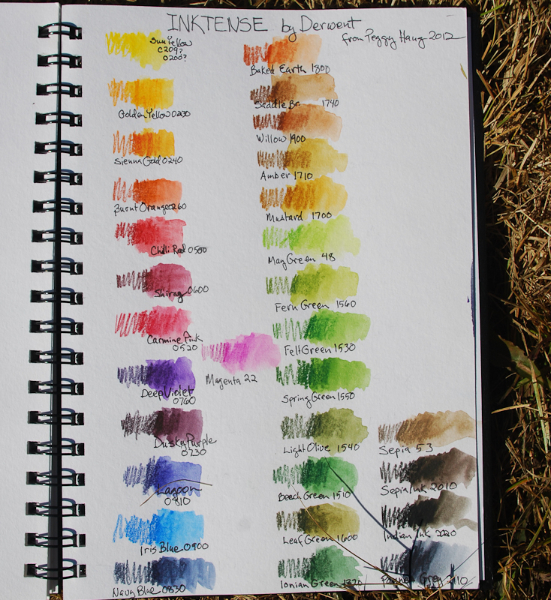 INKTENSE by Derwent
from Peggy Haug 2012
Sun Yellow
C209?
0200?
Golden Yellow 0230
Sienna Gold 0240
Burnt Orange 0260
Chilli Red 0500
Shiraz 0600
Carmine Pink
0520
Deep Violet
0760
Dusky Purple
0730
Lagoon
0810
Iris Blue 0900
Navy Blue 0830
Magenta 22
Baked Earth 1800
Saddle Br 1740
Willow 1900
Amber 1710
Mustard 1700
May Green 48
Fern Green 1560
Felt Green 1530
Spring Green 1550
Light Olive 1540
Beech Green 1510
Leaf Green 1600
Ionian Green 1320
Sepia 53
Sepia Ink 2010
Indian Ink 2020